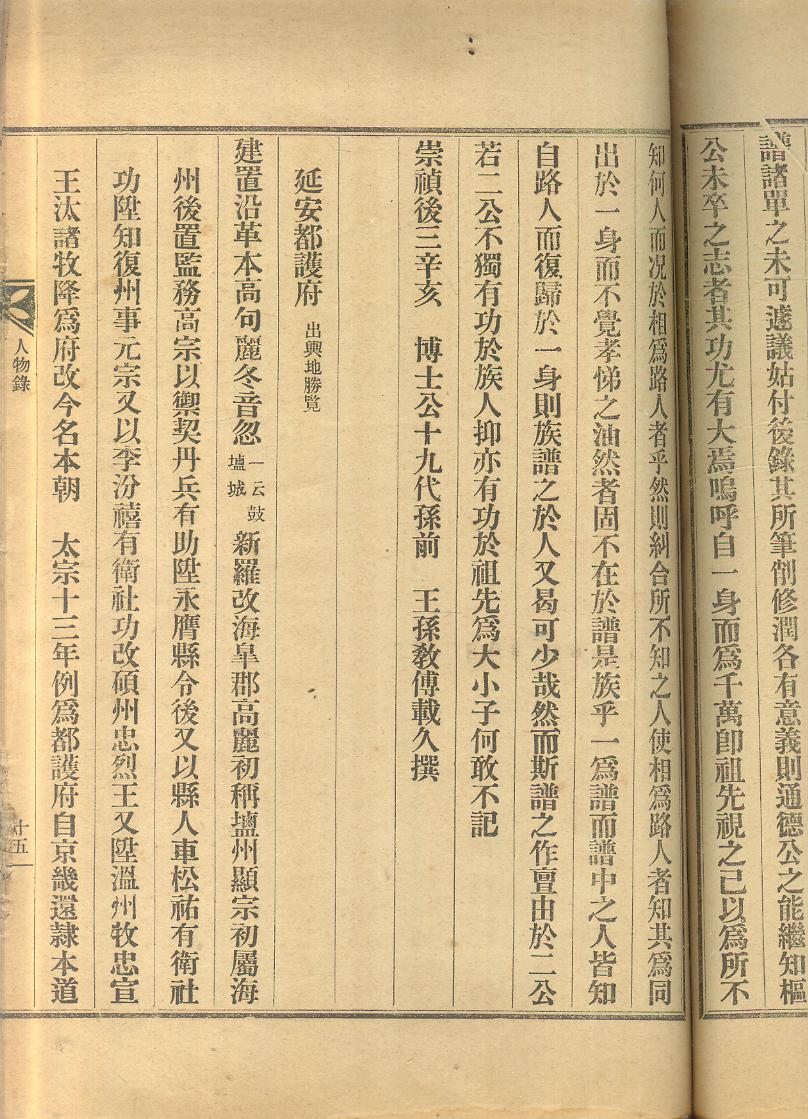 譜諸單之未可遽議姑付後錄其所筆削修潤各有意義則通德公之能繼知樞
公未卒之志者其功尤有大焉嗚呼自一身而爲千萬卽祖先視之已以爲所不
知何人而况於相爲路人者乎然則糾合所不知之人使相爲路人者知其爲同
出於一身而不覺孝悌之油然者固不在於譜是族乎一爲譜而譜中之人皆知
自路人而復歸於一身則族譜之於人又曷可少哉然而斯譜之作亶由於二公
若二公不獨有功於族人抑亦有功於祖先爲大小子何敢不記
崇禎後三辛亥 博士公十九代孫前 王孫敎傅載久撰
延安都護府 出興地勝覧
建置沿革本高句麗冬音忽 一云鼓壚城 新羅改海皐郡高麗初稱塩州顯宗初屬海
州後置監務高宗以禦契丹兵有助陞永膺縣令後又以縣人車松祐有衛社
功陞知復州事元宗又以李汾禧有衛社功改碩州忠烈王又陞溫州牧忠宣
王汰諸牧降爲府改今名本朝 太宗十三年例爲都護府自京畿還隷本道
人物錄
十五